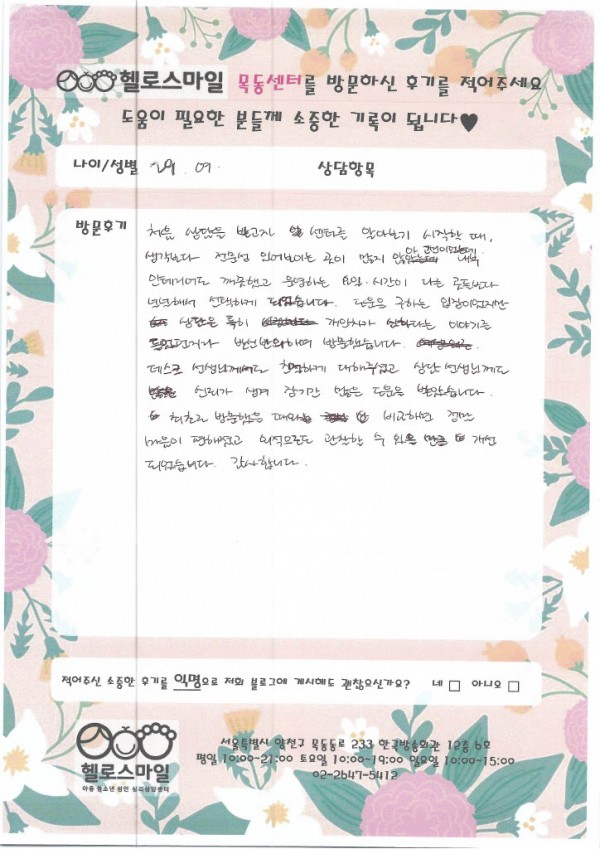 헬로스마일 목동센터를 방문하신 후기를 적어주세요
도움이 필요한 분들께 소중한 기록이 됩니다♥
나이/성별 29. 여. 상담항목
방문후기
처음 상담을 받고자 센터를 알아보기 시작한 때,
생각보다 전문성 있어보이는 곳이 많지 않았는데
인테리어도 깨끗했고 운영하는 요일·시간이 다른 곳들보다
넉넉해서 선택하게 되었습니다. 도움을 구하는 입장이었지만
상담은 특히 개인차가 심하다는 이야기를
반신반의하며 방문했습니다.
데스크 선생님께서도 친절하게 대해주셨고 상담 선생님께도
신뢰가 생겨 장기간 많은 도움을 받았습니다.
최초로 방문했을 때와 비교하면 정말
마음이 편해졌고 외적으로도 관찰할 수 있을 만큼 개선
되었습니다. 감사합니다.
적어주신 소중한 후기를 익명으로 저희 블로그에 게시해도 괜찮으신가요? 네 □ 아니오 □
헬로스마일
아동 청소년 성인 심리상담센터
서울특별시 양천구 목동동로 233 한국방송회관 12층 6호
평일 10:00-21:00 토요일 10:00-19:00 일요일 10:00-15:00
02-2647-5412